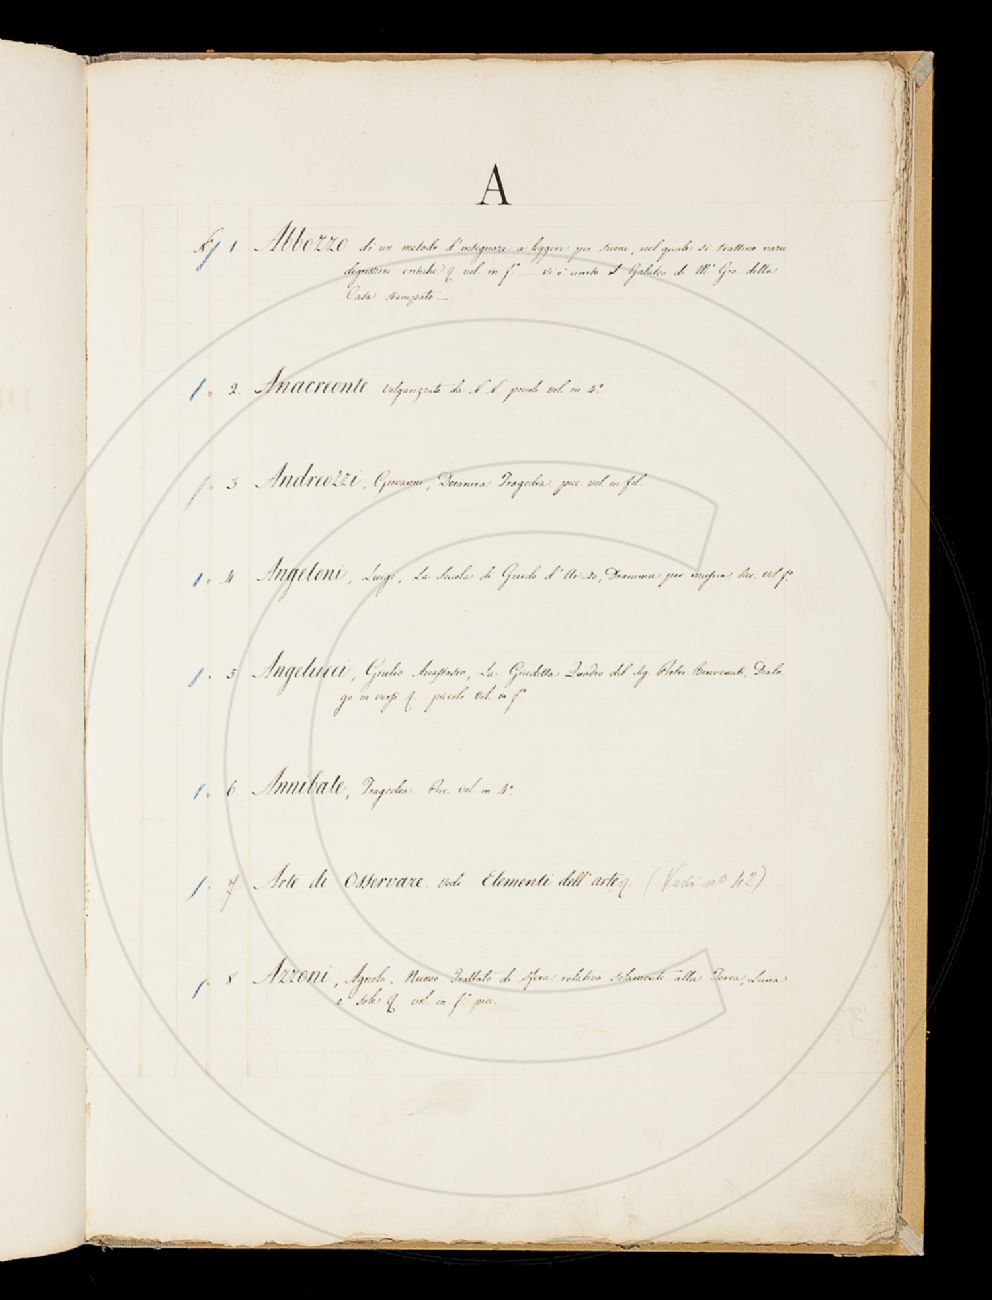 A
N° 1 Abbozzo di un metodo d'insegnare a leggere per suoni, nel quale si trattano varie
digressioni critiche &. vol. in f° — Vi è unito il Galateo di Mr Gio. della
Casa stampato —
" 2. Anacreonte volgarizzato da N. N. piccolo vol. in 4°.
" 3 Andreozzi, Giovanni, Deianira Tragedia. picc. vol. in fol.
" 4 Angeloni, Luigi, La Scuola di Guido d'Arezzo, Dramma per musica. Picc. vol f°
" 5 Angelucci, Giulio Anastasio, La Giuditta Quadro del Sig. Pietro Benvenuti, Dialo
go in versi &. piccolo vol. in f°
" 6. Annibale, Tragedia. Picc. vol. in 4°.
" 7 Arte di Osservare. vedi Elementi dell'arte &. (Vedi n° 42)
" 8 Azzoni, Agnolo, Nuovo Trattato di Sfera relativo solamente alla Terra, Luna
e Sole &. vol. in f° picc.